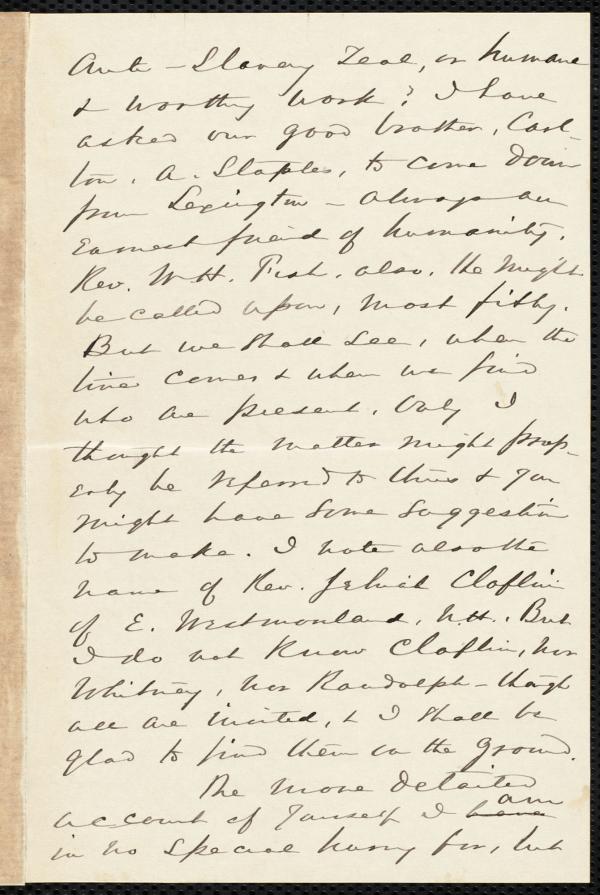 Anti-Slavery Zeal, or humane
& worthy work? I have
asked our good brother, Carl-
ton, A. Staples, to come down
from Lexington - always an
earnest friend of humanity.
Rev. W. H. Fish, also. He might
be called upon, most fitly.
But we shall see, when the
time comes & when we find
who are present. Only I
thought the matter might prop-
erly be referred to thus & you
might have some suggestion
to make. I note also the
name of Rev. Jehiel Claflin
of E. Westmoreland, N.H. But
I do not know Claflin, nor
Whitney, nor Randolph - though
all are invited, & I shall be
glad to find them on the ground.
The more detailed
account of yourself I have am
in no special hurry for, but